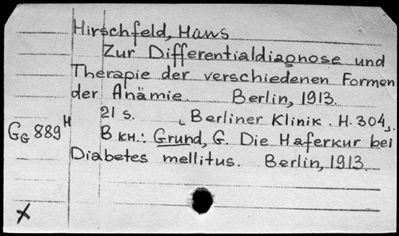 Hirschfeld, Hans
Zur Differentialdiagnose und
Therapie der verschiedenen Formen
der Anämie. Berlin, 1913.
21 s. „Berliner Klinik. H. 304„.
GG 889H В кн.: Grund, G. Die Haferkur bei
Diabetes mellitus. Berlin, 1913.
X